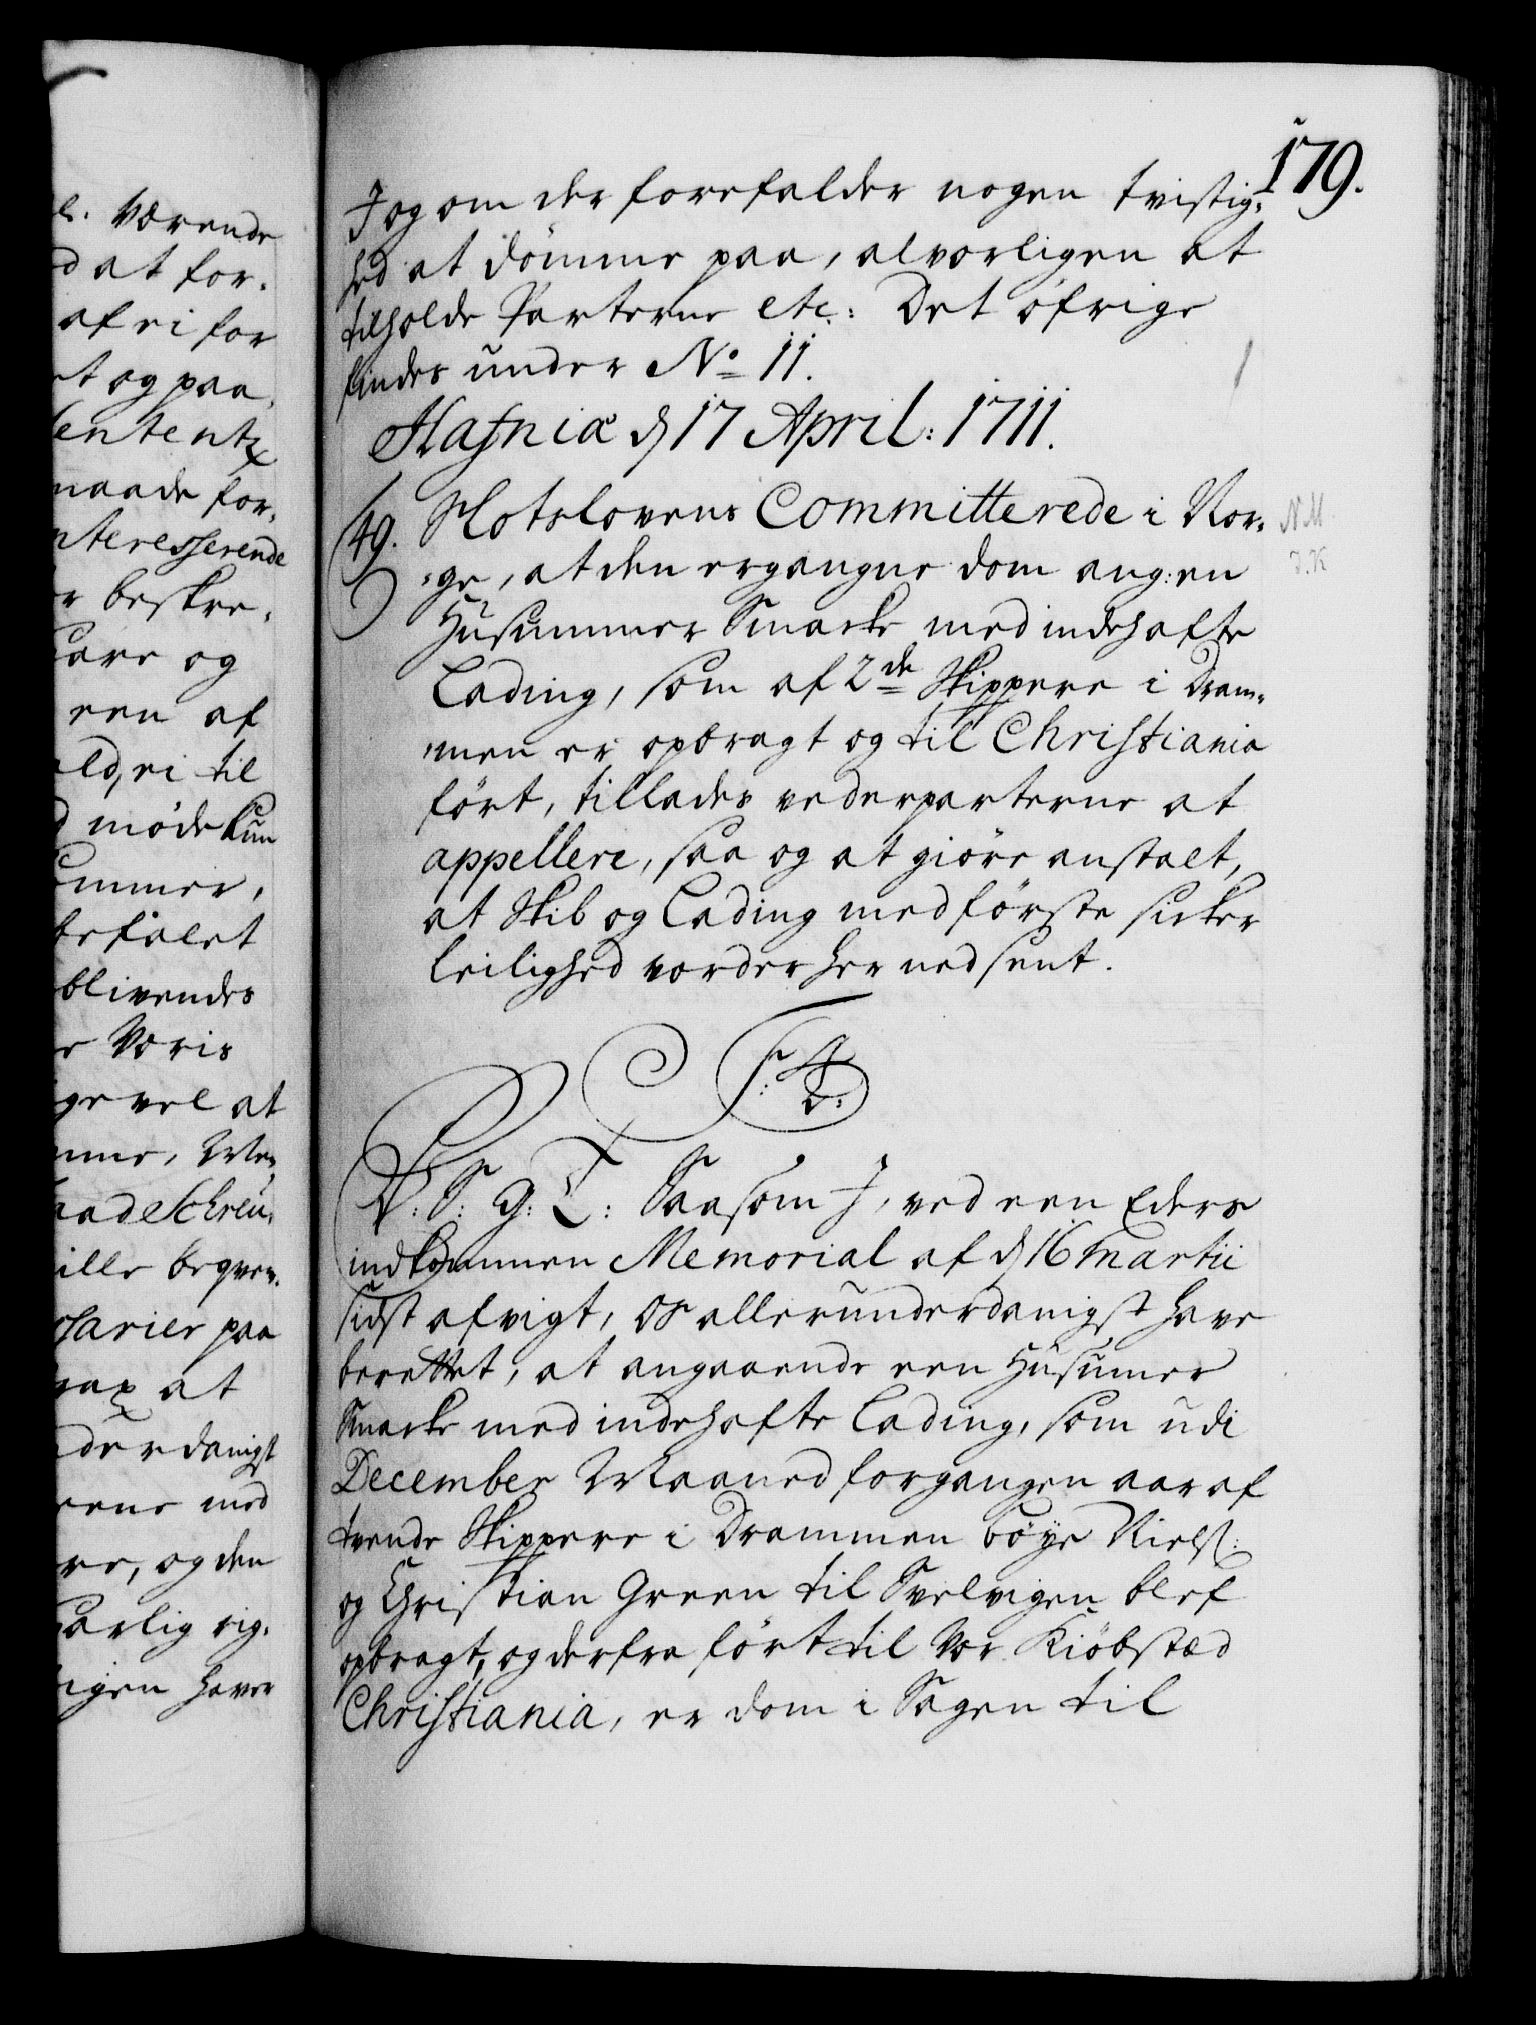 179.
I og om der forefalder nogen tvistig:
hed at dömme paa, alvorligen at
tilholde Parterne etc: Det öfrige
findes under No 11.
Hafniæ d 17 April: 1711.
49. Slotslovens Committerede i Nor:
:ge, at den ergangne dom ang: en
Hüsummer Smacke med indehafte
Lading, som af 2de Skippere i Dram:
:men er opbragt og til Christiania
fört, tillades vederparterne at
appellere, saa og at giöre anstalt,
at Skib og Lading med förste sicker
leilighed vorder her ned sent.
F: 4
V: S: G: T: Saasom I, ved een Eders
indkommen Memorial af d 16 Martii
sidst afvigt, os allerunderdanigst have
berettet, at angaaende een Hüsumer
Smacke med indehafte Lading, som udi
December Maaned forgangen aar af
tvende Skippere i Drammen böÿe Niels:
og Christian Green til Svelvigen blef
opbragt, og derfra fört til Vor Kiöbsted
Christiania, er dom i Sagen til
l. Værende
d at for:
af ei for
et og paa
naade for:
nteresserende
er beskre:
og
een af
til
möde kun
ommer,
befalet
blivendes
e Voris
ge vel at
ille beqvem
sarier paa
at
nderdanigst
eene med
re, og den
arlig rig:
igen haver
N.M.
J.K